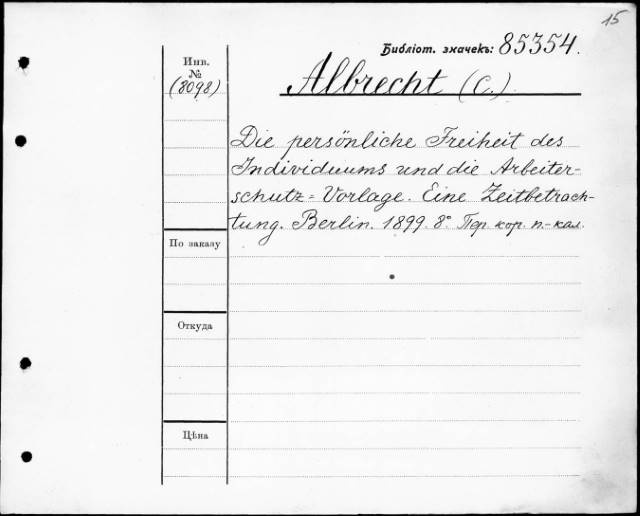 15
Библіот. значекъ: 85354.
Инв.
№
(8098)
Albrecht (C.)
Die persönliche Freiheit des
Individuums und die Arbeiter-
schutz=Vorlage. Eine Zeitbetrach-
tung. Berlin. 1899. 8° Пер. кор. п.-кал.
По заказу
Откуда
Цѣна